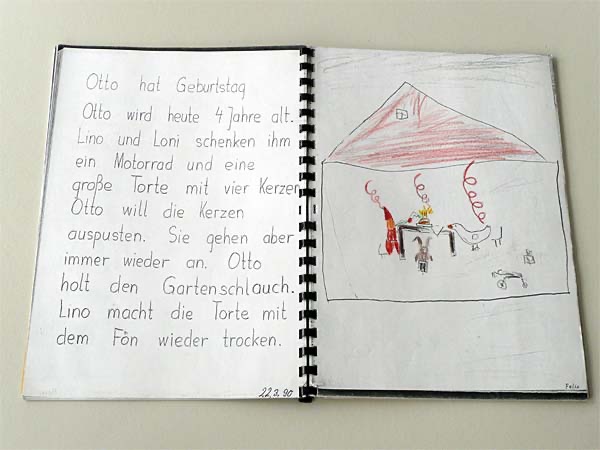 Otto hat Geburtstag
Otto wird heute 4 Jahre alt.
Lino und Loni schenken ihm
ein Motorrad und eine
große Torte mit vier Kerzen
Otto will die Kerzen
auspusten. Sie gehen aber
immer wieder an. Otto
holt den Gartenschlauch.
Lino macht die Torte mit
dem Fön wieder trocken.
22.3.90
Felix